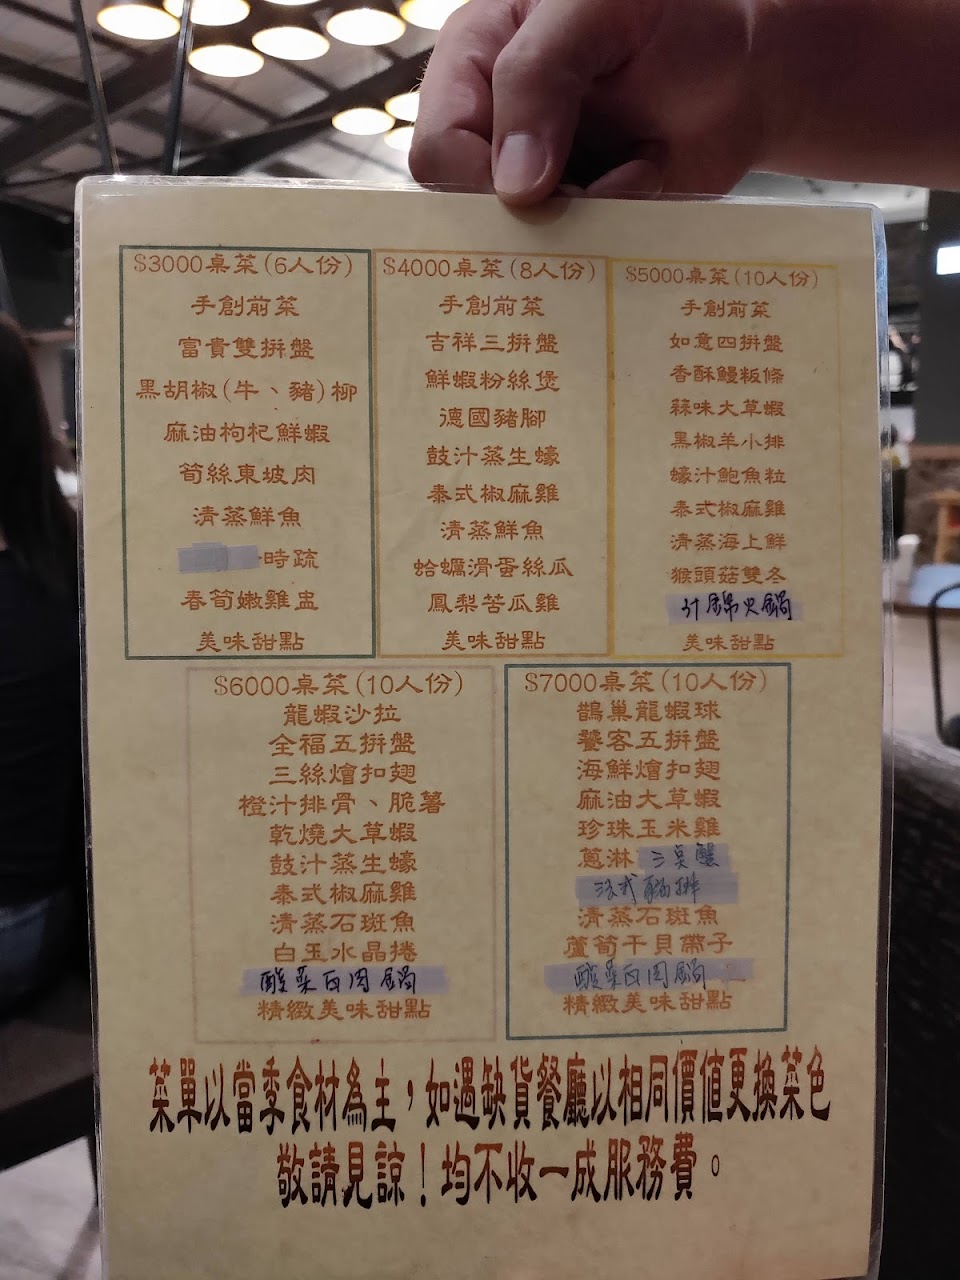 $3000桌菜(6人份)
手創前菜
富貴雙拼盤
黑胡椒(牛、豬)柳
麻油枸杞鮮蝦
筍絲東坡肉
清蒸鮮魚
時疏
春筍嫩雞盅
美味甜點
$4000桌菜(8人份)
手創前菜
吉祥三拼盤
鮮蝦粉絲煲
德國豬腳
鼓汁蒸生蠔
泰式椒麻雞
清蒸鮮魚
蛤蠣滑蛋絲瓜
鳳梨苦瓜雞
美味甜點
$5000桌菜(10人份)
手創前菜
如意四拼盤
香酥鰻粄條
蒜味大草蝦
黑椒羊小排
蠔汁鮑魚粒
泰式椒麻雞
清蒸海上鮮
猴頭菇雙冬
什錦火鍋
美味甜點
$6000桌菜(10人份)
龍蝦沙拉
全福五拼盤
三絲燴扣翅
橙汁排骨、脆薯
乾燒大草蝦
鼓汁蒸生蠔
泰式椒麻雞
清蒸石斑魚
白玉水晶捲
酸菜白肉鍋
精緻美味甜點
$7000桌菜(10人份)
鵲巢龍蝦球
饕客五拼盤
海鮮燴扣翅
麻油大草蝦
珍珠玉米雞
蔥淋三点蟹
法式豬排
清蒸石斑魚
蘆筍干貝帶子
酸菜白肉鍋
精緻美味甜點
菜單以當季食材為主，如遇缺貨餐廳以相同價值更換菜色
敬請見諒！均不收一成服務費。